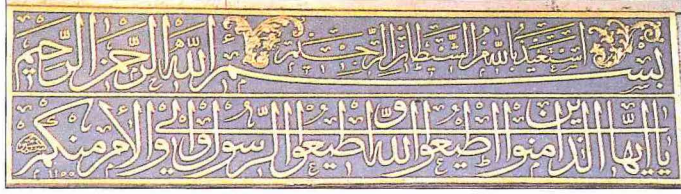 استعيذ بالله من الشيطان الرجيم
بسم الله الرحمن الرحيم
يا ايها الذين امنوا اطيعوا الله واطيعوا الرسول واولي الامر منكم